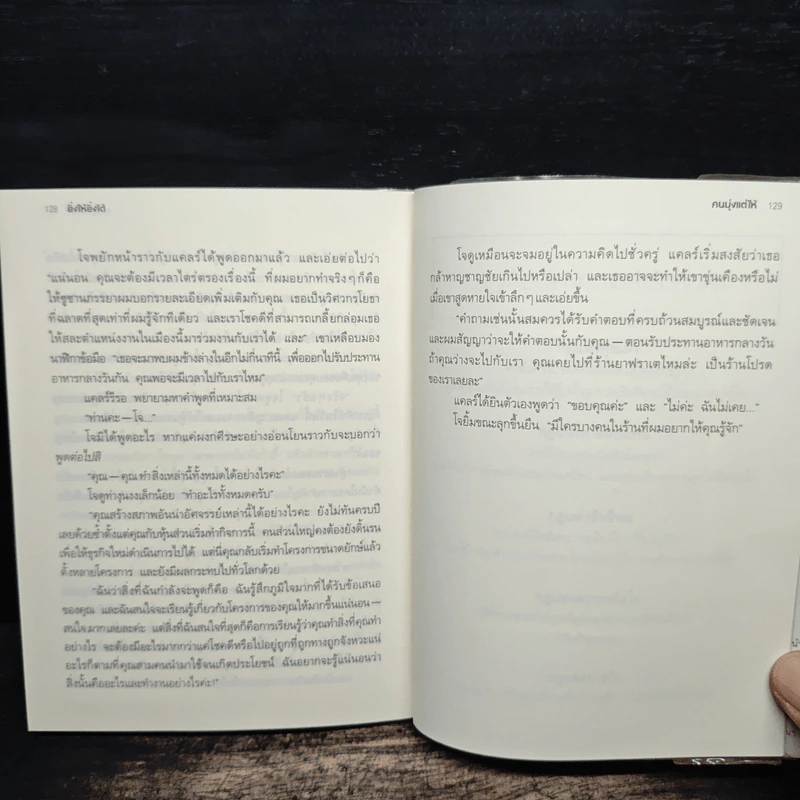 128 ยิ่งให้ยิ่งได้
โจพยักหน้าราวกับแคลร์ได้พูดออกมาแล้ว และเอ่ยต่อไปว่า
“แน่นอน คุณจะต้องมีเวลาไตร่ตรองเรื่องนี้ ที่ผมอยากทำจริงๆ ก็คือ
ให้ซูซานภรรยาผมบอกรายละเอียดเพิ่มเติมกับคุณ เธอเป็นวิศวกรโยธา
ที่ฉลาดที่สุดเท่าที่ผมรู้จักทีเดียว และเราโชคดีที่สามารถเกลี้ยกล่อมเธอ
ให้สละตำแหน่งงานในเมืองนี้มาร่วมงานกับเราได้ และ” เขาเหลือบมอง
นาฬิกาข้อมือ “เธอจะมาพบผมข้างล่างในอีกไม่กี่นาทีนี้ เพื่อออกไปรับประทาน
อาหารกลางวันกัน คุณพอจะมีเวลาไปกับเราไหม”
แคลร์รีรอ พยายามหาคำพูดที่เหมาะสม
“ท่านคะ — โจ...”
โจมิได้พูดอะไร หากแค่ผงกศีรษะอย่างอ่อนโยนราวกับจะบอกว่า
พูดต่อไปสิ
“คุณ — คุณ ทำ สิ่งเหล่านี้ทั้งหมดได้อย่างไรคะ”
โจดูท่างุนงงเล็กน้อย “ทำอะไรทั้งหมดครับ”
“คุณสร้างสภาพอันน่าอัศจรรย์เหล่านี้ได้อย่างไรคะ ยังไม่ทันครบปี
เลยด้วยซ้ำตั้งแต่คุณกับหุ้นส่วนเริ่มทำกิจการนี้ คนส่วนใหญ่คงต้องยังดิ้นรน
เพื่อให้ธุรกิจใหม่ดำเนินการไปได้ แต่นี่คุณกลับเริ่มทำโครงการขนาดยักษ์แล้ว
ตั้งหลายโครงการ และยังมีผลกระทบไปทั่วโลกด้วย
“ฉันว่าสิ่งที่ฉันกำลังจะพูดก็คือ ฉันรู้สึกภูมิใจมากที่ได้รับข้อเสนอ
ของคุณ และฉันสนใจจะเรียนรู้เกี่ยวกับโครงการของคุณให้มากขึ้นแน่นอน —
สนใจ มากเลยละค่ะ แต่สิ่งที่ฉันสนใจที่สุดก็คือการเรียนรู้ว่าคุณทำสิ่งที่คุณทำ
อย่างไร จะต้องมีอะไรมากกว่าแค่โชคดีหรือไปอยู่ถูกที่ถูกทางถูกจังหวะแน่
อะไรก็ตามที่คุณสามคนนำมาใช้จนเกิดประโยชน์ ฉันอยากจะรู้แน่นอนว่า
สิ่งนั้นคืออะไรและทำงานอย่างไรค่ะ!”
คนมุ่งแต่ให้ 129
โจดูเหมือนจะจมอยู่ในความคิดไปชั่วครู่ แคลร์เริ่มสงสัยว่าเธอ
กล้าหาญชาญชัยเกินไปหรือเปล่า และเธออาจจะทำให้เขาขุ่นเคืองหรือไม่
เมื่อเขาสูดหายใจเข้าลึกๆ และเอ่ยขึ้น
“คำถามเช่นนั้นสมควรได้รับคำตอบที่ครบถ้วนสมบูรณ์และชัดเจน
และผมสัญญาว่าจะให้คำตอบนั้นกับคุณ — ตอนรับประทานอาหารกลางวัน
ถ้าคุณว่างจะไปกับเรา คุณเคยไปที่ร้านยาฟราเตไหมล่ะ เป็นร้านโปรด
ของเราเลยละ”
แคลร์ได้ยินตัวเองพูดว่า “ขอบคุณค่ะ” และ “ไม่ค่ะ ฉันไม่เคย...”
โจยิ้มขณะลุกขึ้นยืน “มีใครบางคนในร้านที่ผมอยากให้คุณรู้จัก”